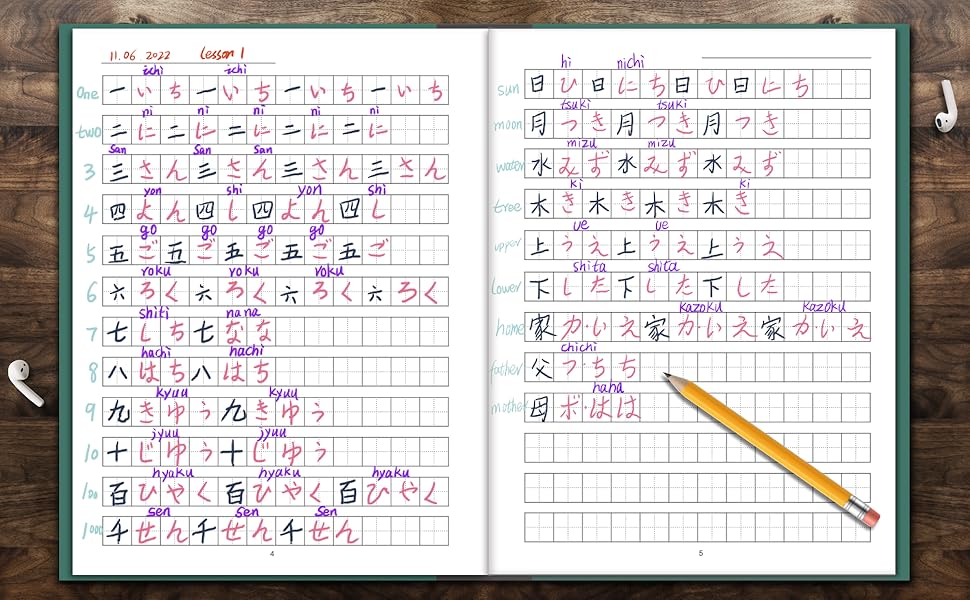 11.06 2022 Lesson 1
ichi ichi
one 一 いち 一 いち 一 いち 一 いち
ni ni ni ni ni
two 二 に 二 に 二 に 二 に 二 に
san san san
3 三 さん 三 さん 三 さん 三 さん
yon shi yon shi
4 四 よん 四 し 四 よん 四 し
go go go go
5 五 ご 五 ご 五 ご 五 ご 五 ご
roku roku roku
6 六 ろく 六 ろく 六 ろく 六 ろく
shiti nana
7 七 しち 七 なな
hachi hachi
8 八 はち 八 はち
kyuu kyuu
9 九 きゆう 九 きゆう
jyuu jyuu
10 十 じゆう 十 じゆう
hyaku hyaku hyaku
100 百 ひやく 百 ひやく 百 ひやく
sen sen sen
1000 千 せん 千 せん 千 せん
4
hi nichi
sun 日 ひ 日 にち 日 ひ 日 にち
tsuki tsuki
moon 月 つき 月 つき 月 つき
mizu mizu
water 水 みず 水 みず 水 みず
ki ki
tree 木 き 木 き 木 き 木 き
ue ue
upper 上 うえ 上 うえ 上 うえ
shita shita
lower 下 した 下 した 下 した
kazoku kazoku
home 家 カ・いえ 家 か・いえ 家 か・いえ
chichi
father 父 フ・ちち
haha
mother 母 ボ・はは
5